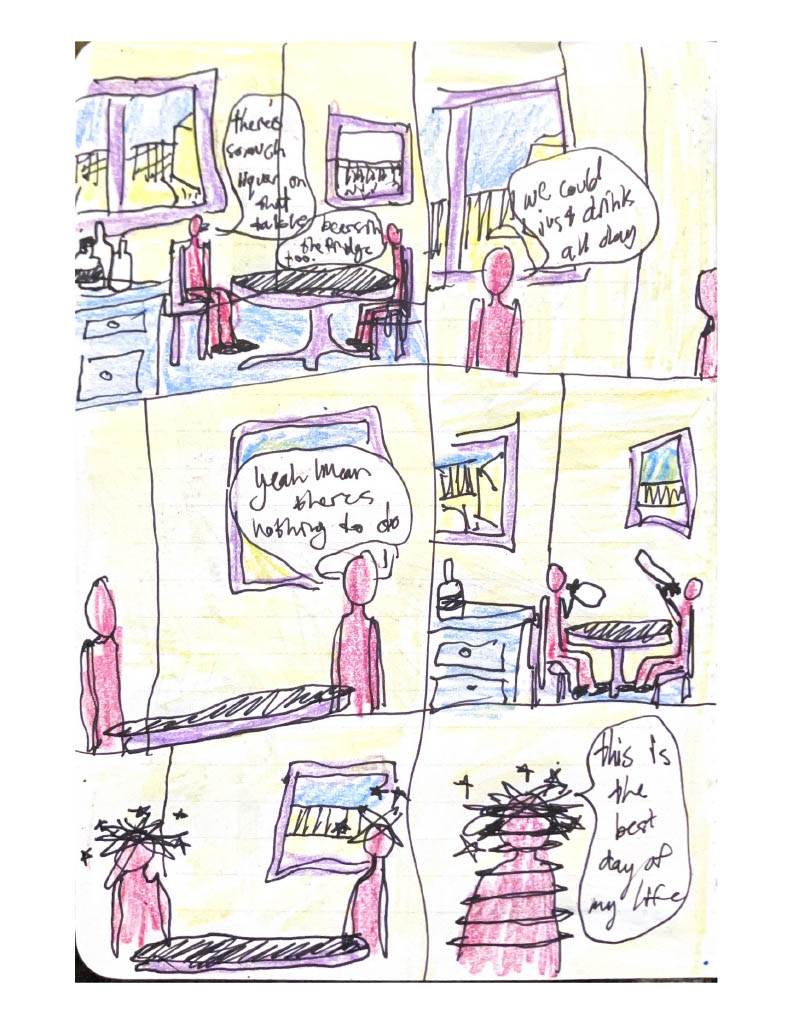 there's
so much
liquor on
that
table
beers in
the fridge
too.
we could
just drink
all day
yeah I mean
theres
nothing to do
this is
the
best
day of
my life